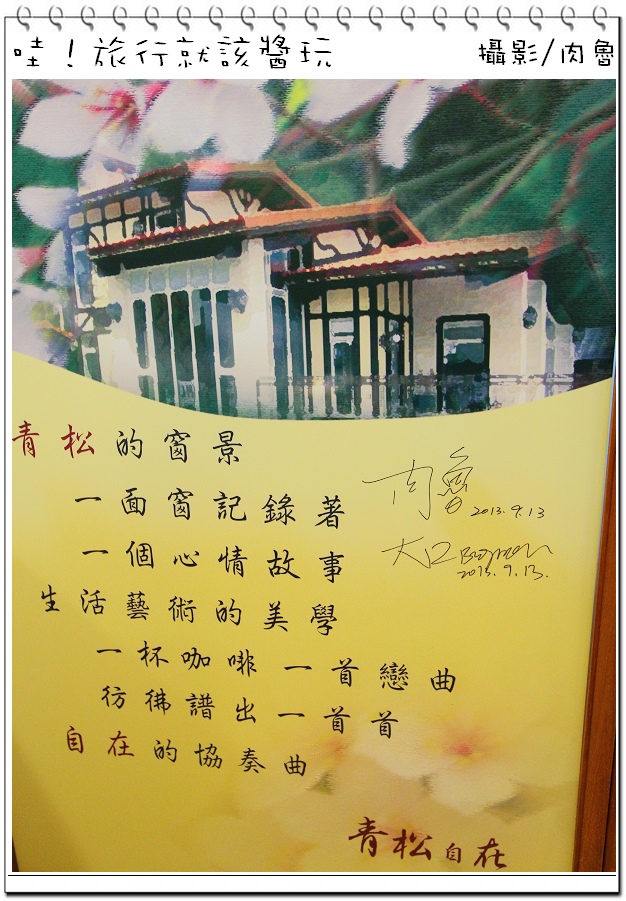 哇！旅行就該醬玩
攝影/肉魯
青松的窗景
一面窗記錄著
一個心情故事
生活藝術的美學
一杯咖啡 一首戀曲
彷彿譜出一首首
自在的協奏曲
肉魯 2013.9.13
大口
2013.9.13.
青松自在